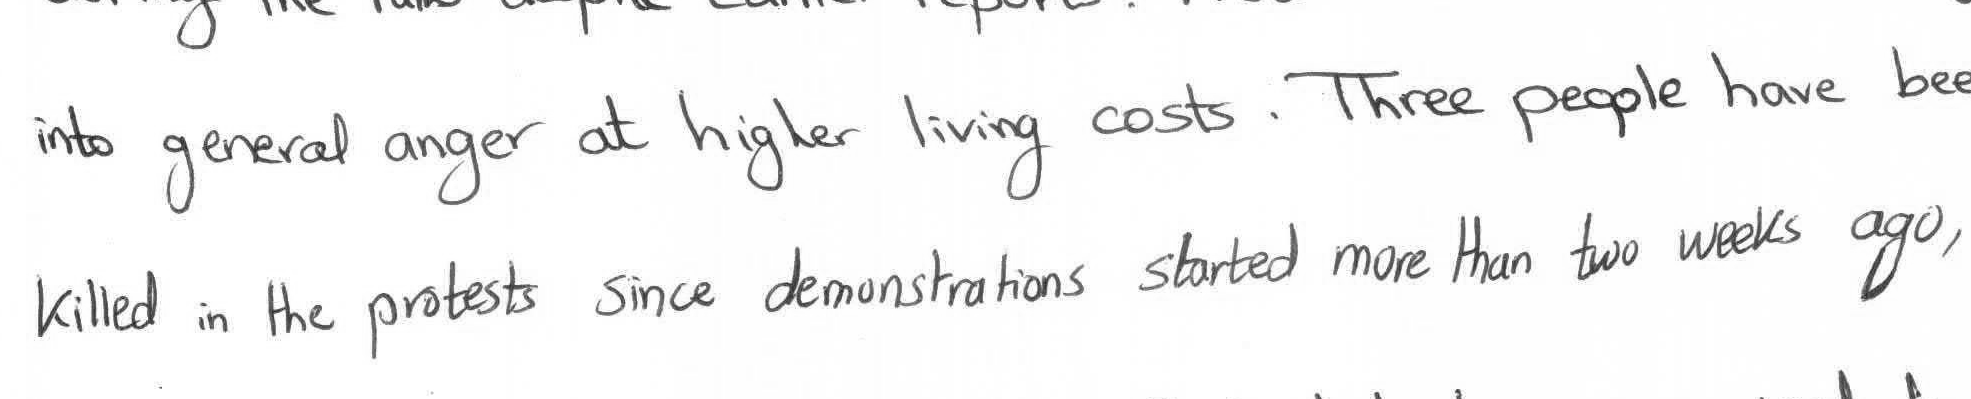 into general anger at higher living costs. Three people have bee
killed in the protests since demonstrations started more than two weeks ago,